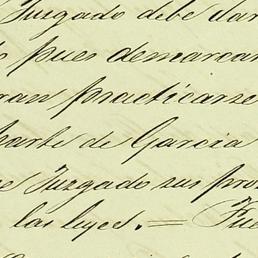 Juzgado debe dar
pues demarcar
ran practicarse
parte de Garcia
Juzgado sus pro
las leyes. = Fue